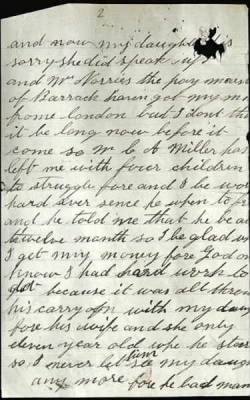 2
and now my daughter is
sorry she did speak
and Mr Norries the pay
of Barrack got my
frome London but I dont
it be long now before it
come so Mr C A Miller has
left me with fower children
to struggle fore and I be
hard ever since he when to
and he told me that he be
twelve month so I be glad
I get my money fore God
know I had hard work to
get because it was all
his carry on with my
fore his wife and she only
eleven year old whe he
so I never let him my
any more fore he bad man